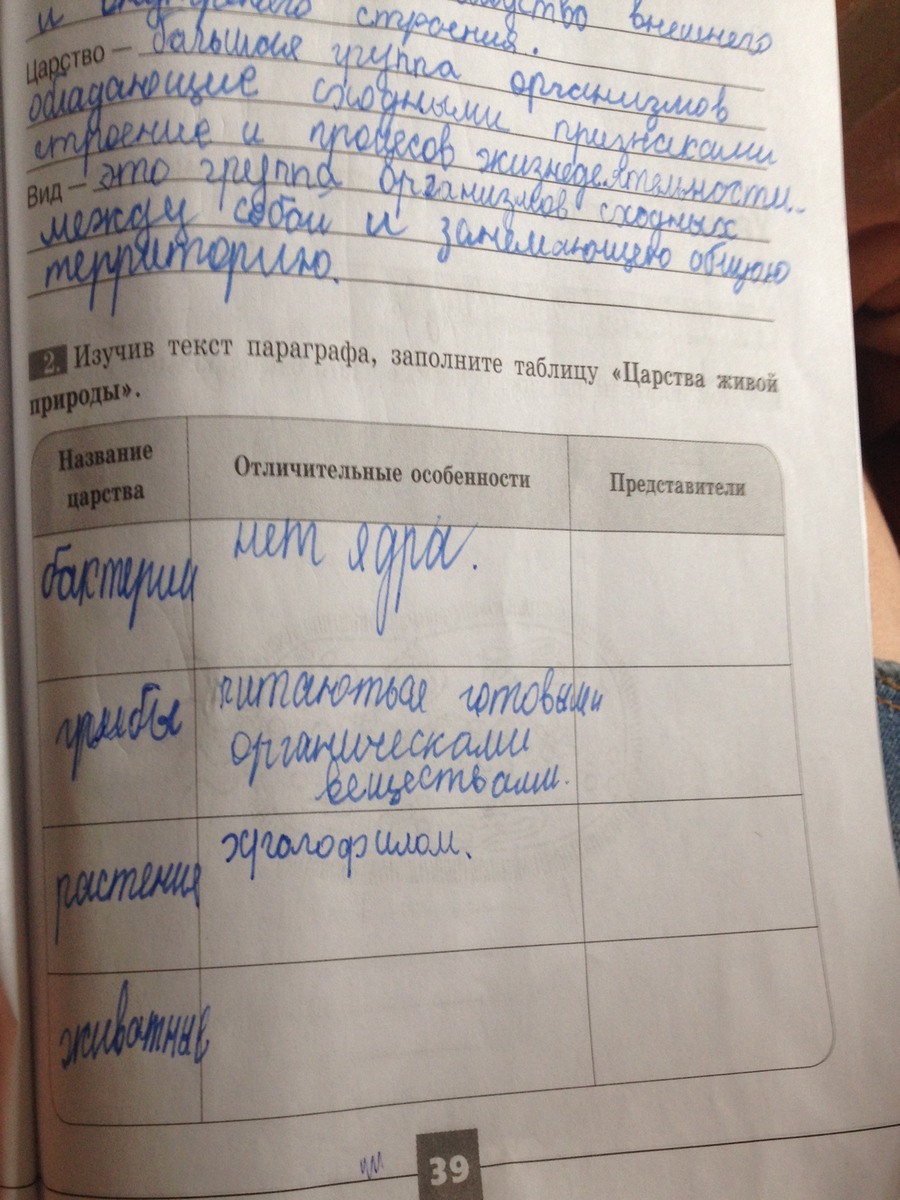 и внутреннего строения. внешнего
Царство — большая группа организмов
обладающие сходными признаками
строение и процесов жизнедеятельности..
Вид — это группа организмов сходных
между собой и занемающею общую
территорию.
2. Изучив текст параграфа, заполните таблицу «Царства живой
природы».
Название
царства
Отличительные особенности
Представители
бактерии
нет ядра.
грыбы
питаютьая готовыми
органическами
веществами.
растения
хролофилом.
живатные
39